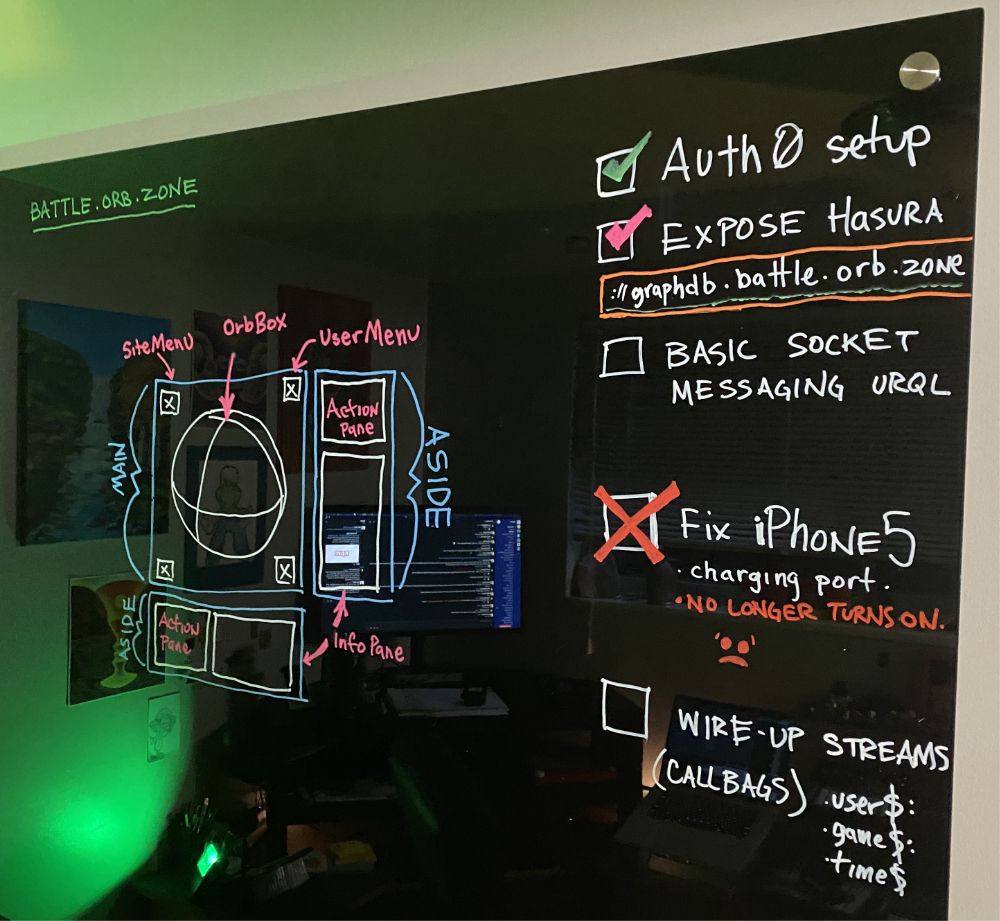 BATTLE.ORB.ZONE
SiteMenu
OrbBox
UserMenu
MAIN
X
X
X
X
Action
Pane
ASIDE
ASIDE
Action
Pane
InfoPane
Auth0 setup
EXPOSE HASURA
://graphdb.battle.orb.zone
BASIC SOCKET
MESSAGING URQL
Fix iPHONE5
· charging port.
· NO LONGER TURNS ON.
WIRE-UP STREAMS
(CALLBAGS)
·user$:
·game$:
·time$